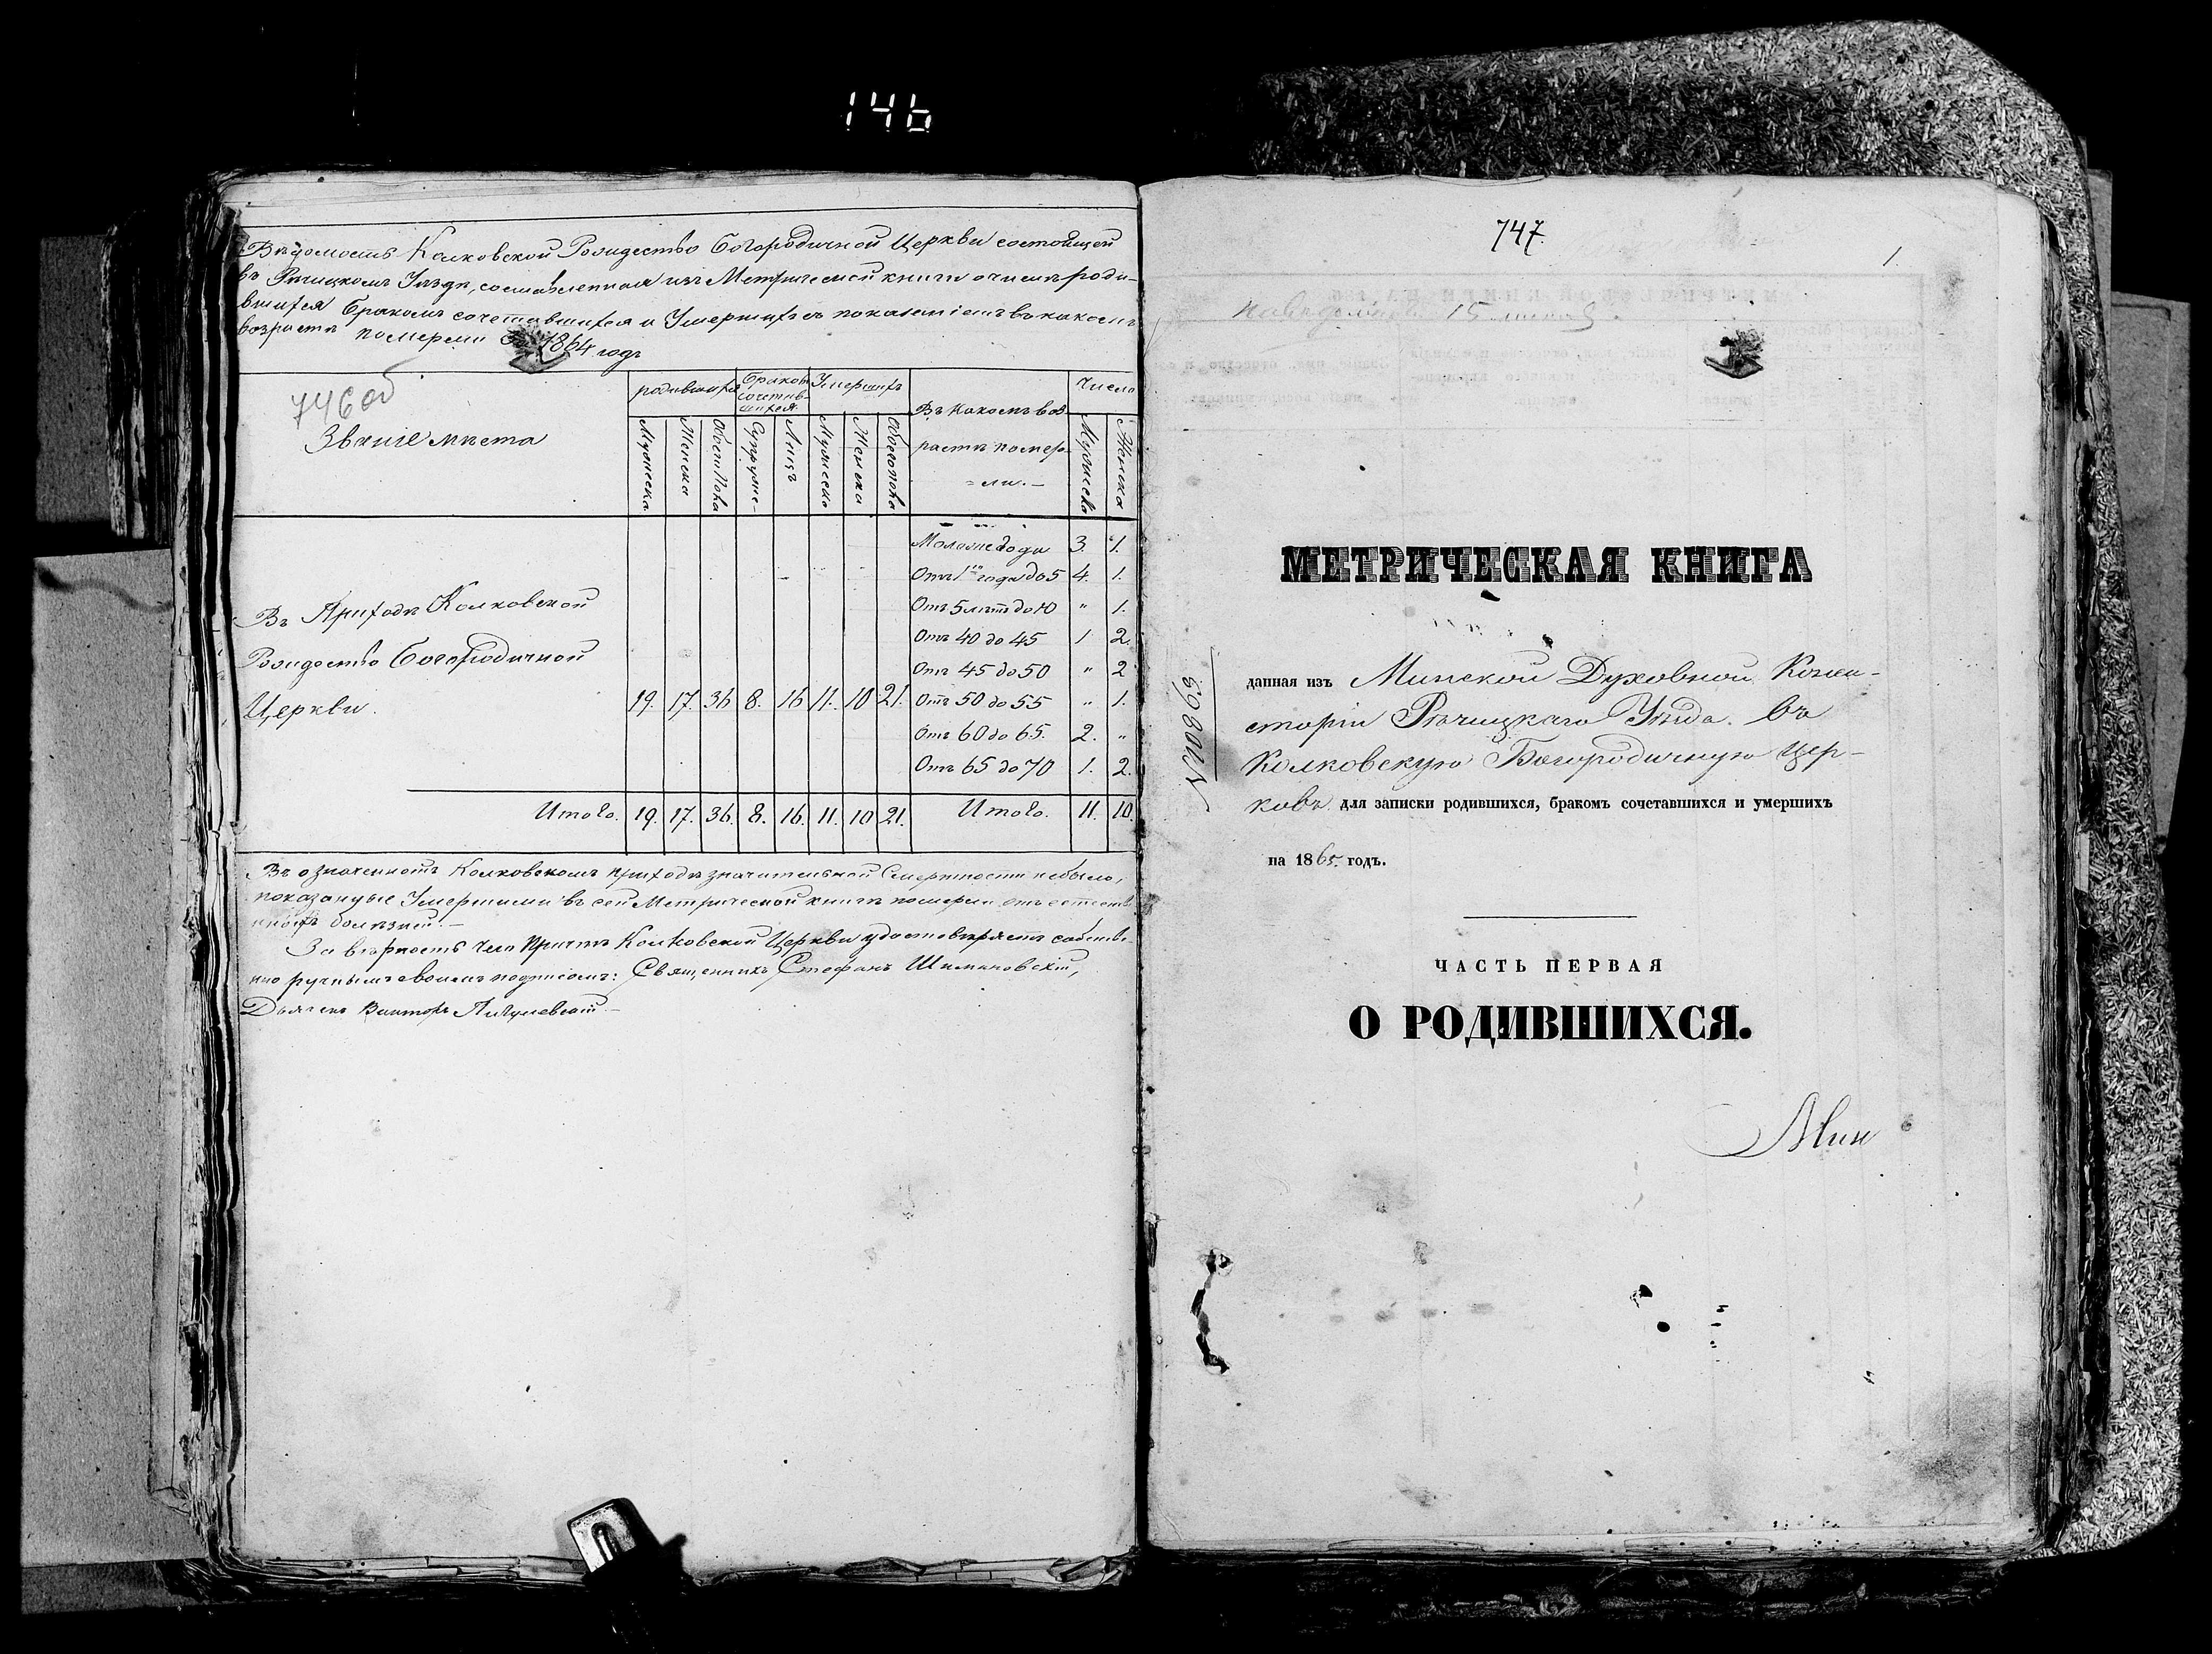 146
Вѣдомость Колковской Рождество Богородичной Церкви состоящей
въ Рѣчицкомъ Уѣздѣ, составленная изъ Метрической книги о числѣ роди-
вшихся Бракомъ сочетавшихся и Умершихъ съ показаніемъ въ какомъ
возрастѣ померли За 1864 годъ
746 об
Званіе мѣста
родившихся
Бракомъ сочетав-шихся
Умершихъ
Въ какомъ воз
растѣ помер-
=ли.-
Число
Мужеска
Женска
Обоего Пола
Супруже-
Лицъ
Мужеска
Женска
Обоего пола
Мужеска
Женска
Моложе года 3. 1.
Отъ 1го года до 5 4. 1.
Отъ 5 лѣтъ до 10 " 1.
Отъ 40 до 45 1 2.
Отъ 45 до 50 " 2
Отъ 50 до 55 " 1.
Отъ 60 до 65. 2. "
Отъ 65 до 70 1. 2.
Въ Приходѣ Колковской
Рождество Богородичной
Церкви. 19. 17. 36 8. 16 11. 10 21.
Итого. 19. 17. 36. 8. 16. 11. 10 21. Итого. 11. 10.
Въ означенномъ Колковскомъ приходѣ значительной Смертности небыло,
показанные Умершими въ сей Метрической книгѣ померли отъ естеств
нныхъ болѣзней.-
За вѣрность чего Причтъ Колковской Церкви удостовѣряетъ собстве
нно ручнымъ своимъ подписомъ: Священникъ Стефанъ Шимановскій,
Дьячекъ Викторъ
747.
1.
15
МЕТРИЧЕСКАЯ КНИГА
№1089
данная изъ Минской Духовной Конси-
сторіи Рѣчицкаго Уѣзда. Въ
Колковскую Богородичную Цер-
ковь для записки родившихся, бракомъ сочетавшихся и умершихъ
на 1865. годъ.
ЧАСТЬ ПЕРВАЯ
О РОДИВШИХСЯ.
Мин